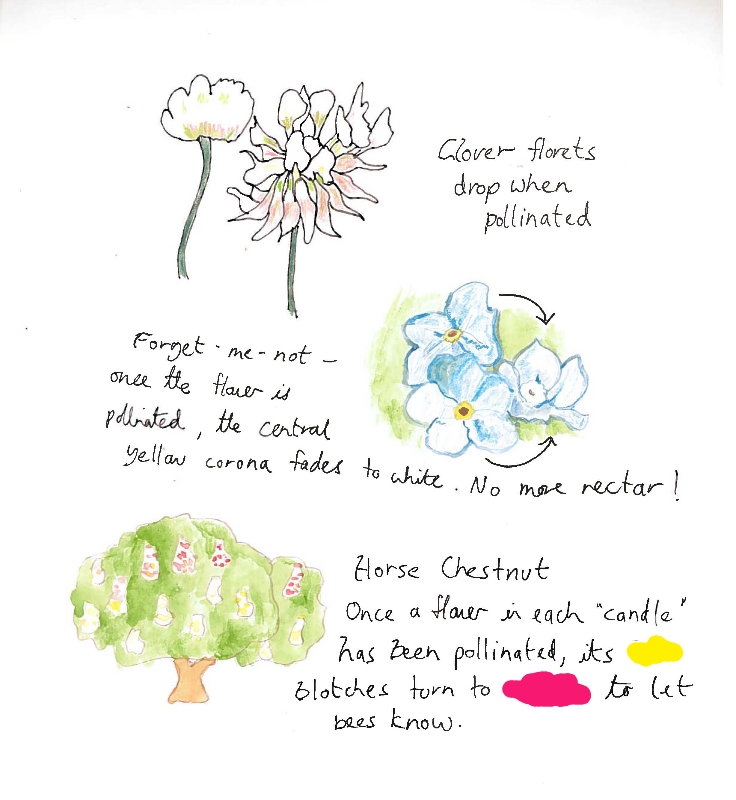 Clover florets
drop when
pollinated
Forget-me-not -
once the flower is
pollinated, the central
yellow corona fades to white. No more nectar!
Horse Chestnut
Once a flower in each "candle"
has been pollinated, its
blotches turn to to let
bees know.